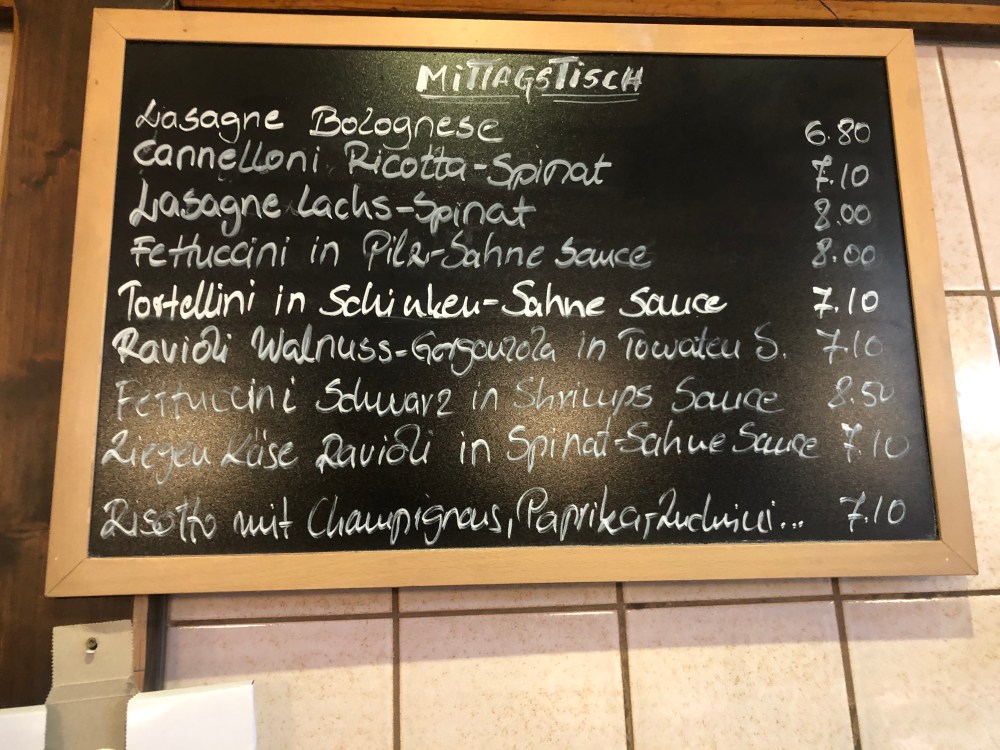 MiTTAGSTiSCH
Lasagne Bolognese 6.80
Cannelloni Ricotta-Spinat 7.10
Lasagne Lachs-Spinat 8.00
Fettuccini in Pilz-Sahne Sauce 8.00
Tortellini in Schinken-Sahne Sauce 7.10
Ravioli Walnuss-Gorgonzola in Tomaten S. 7.10
Fettuccini Schwarz in Shrimps Sauce 8.50
Ziegen Käse Ravioli in Spinat-Sahne Sauce 7.10
Risotto mit Champignons, Paprika, Zuchini... 7.10